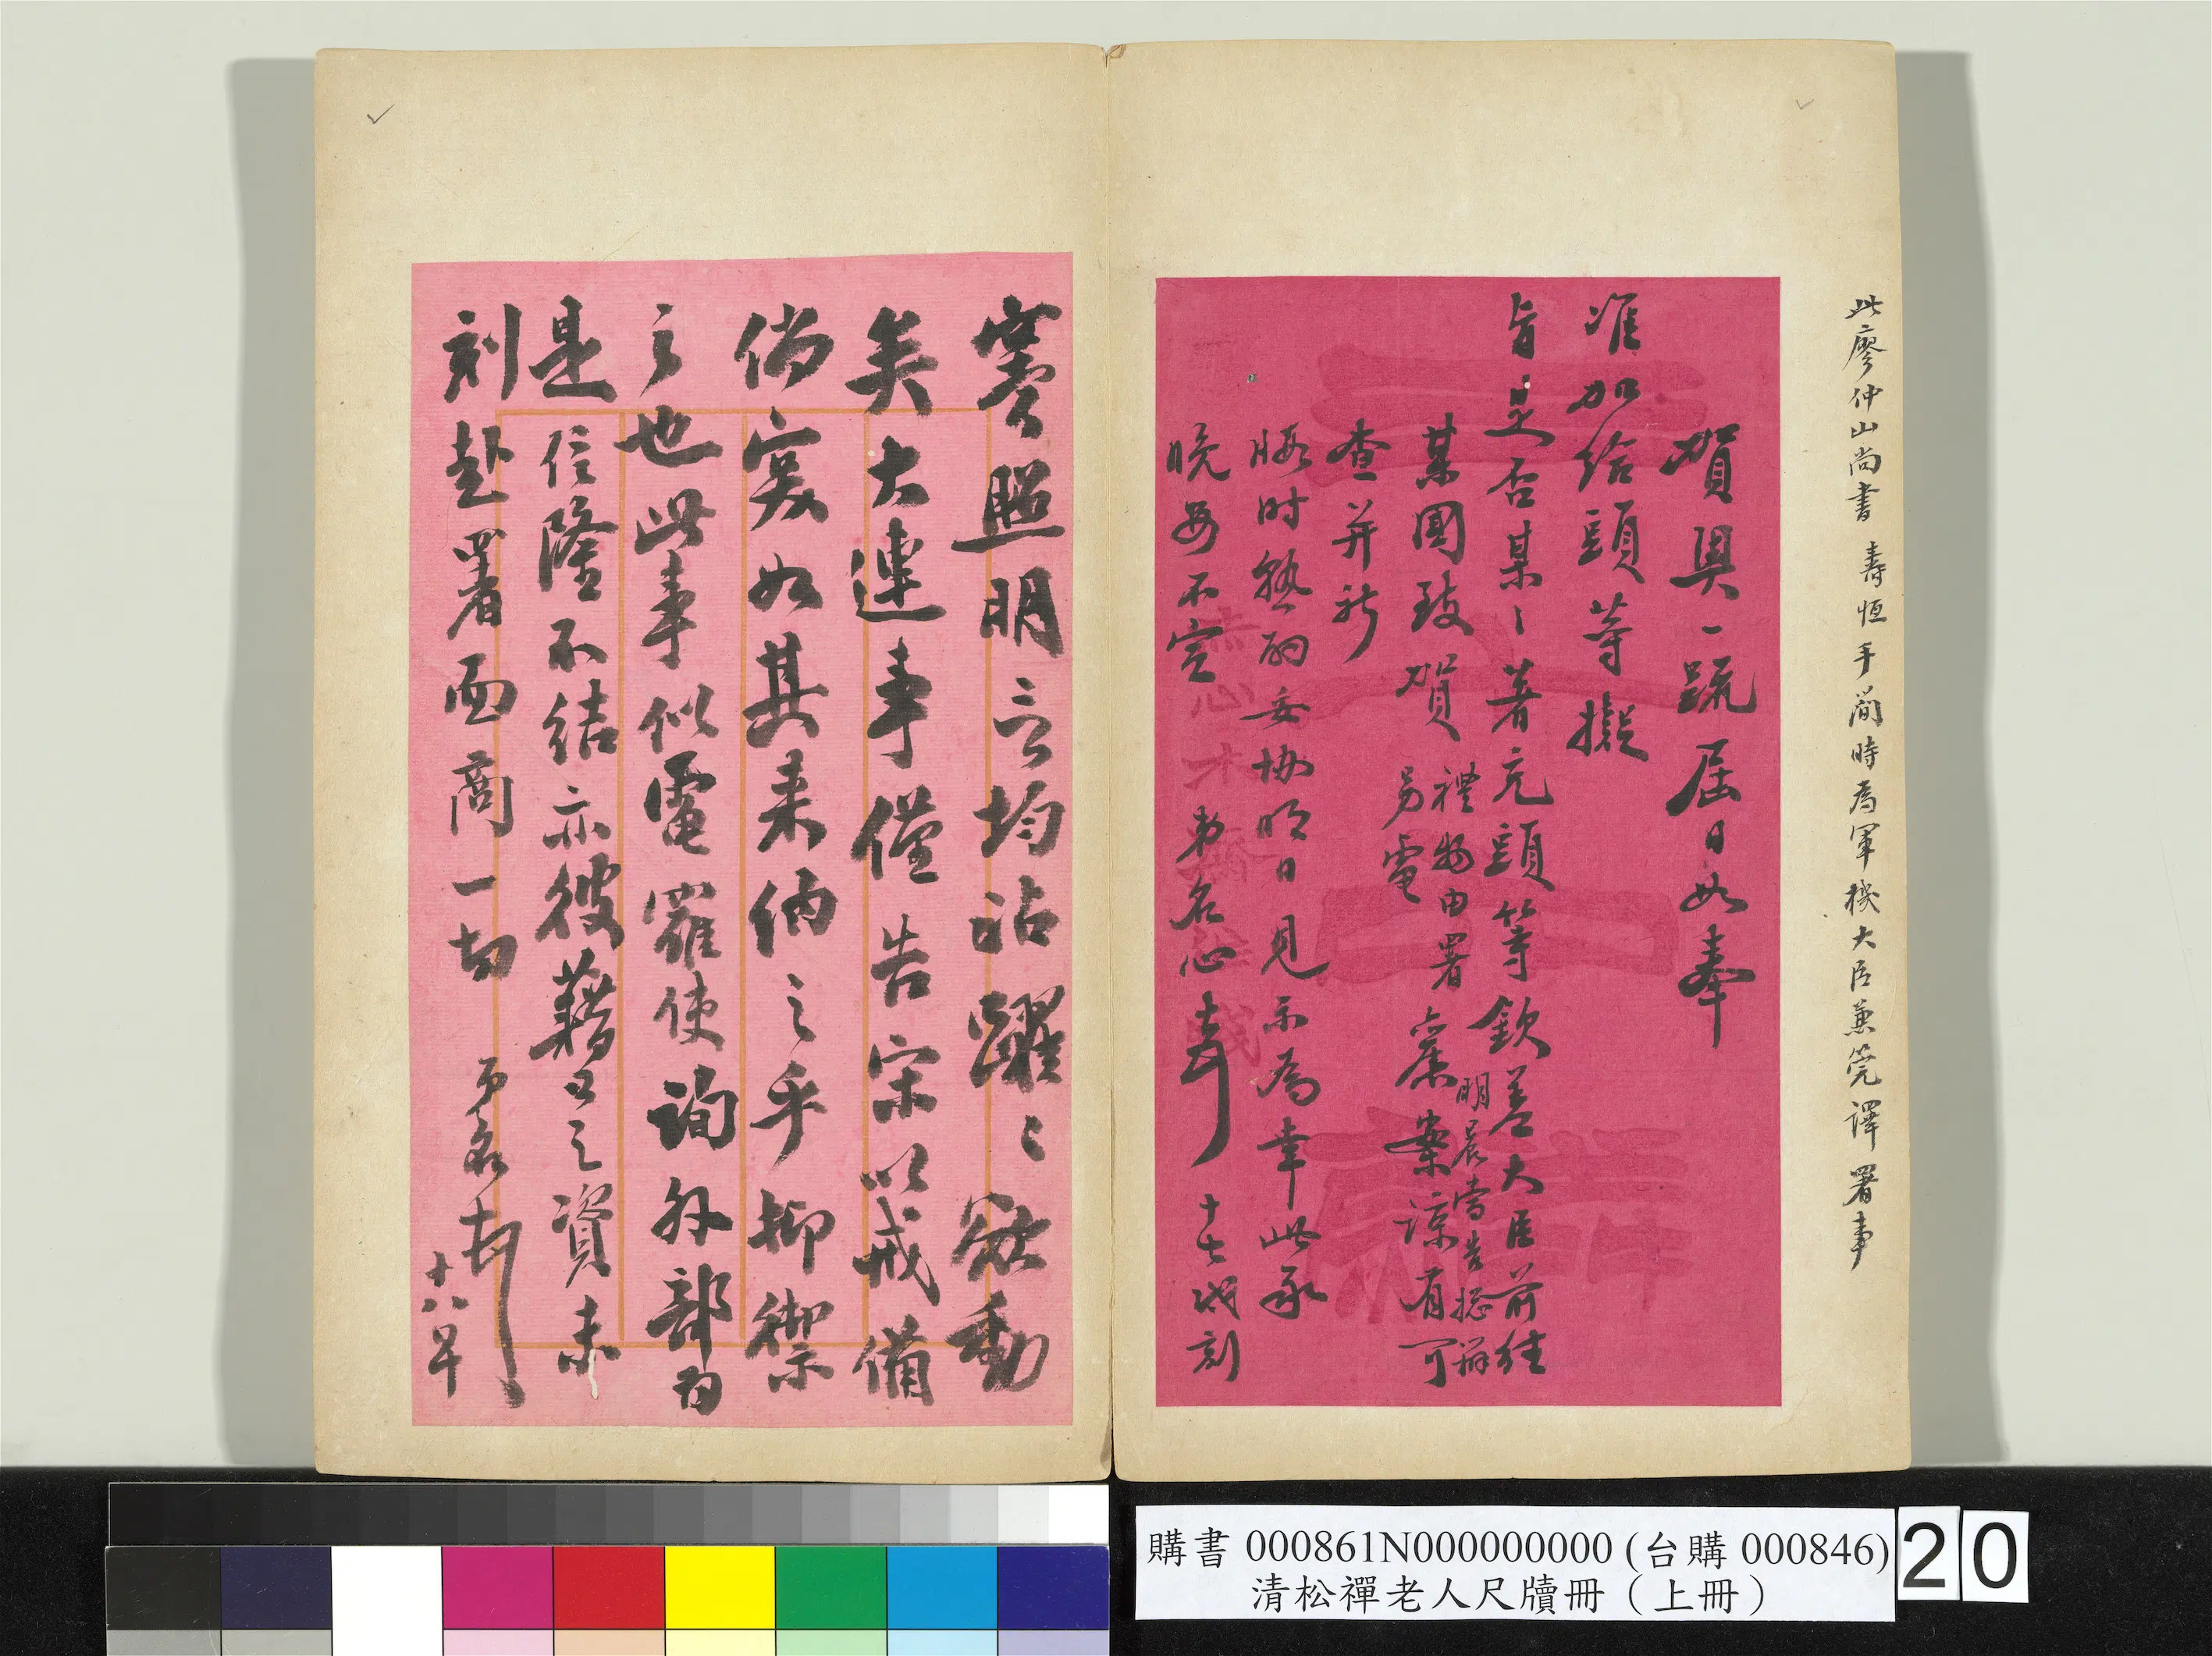 此廖仲山尚書 壽恒手簡時為軍機大臣兼筦譯署事
賀與一疏屆日如奉
准加給頭等擬
旨是否某〻著充頭等欽差大臣前往
某國致賀 禮物由署
明晨當告總辦
另電 案諒有可
查并祈
暇時 酌妥協明日見示為幸此承
晚安不宣 弟名心 十七戌刻
照明言均 躍〻 動
矣大連事僅告宋以戒備
倘寇如其來俩之乎抑禦
之也此事似電羅使詢外部為
是信隆不結亦彼藉口之資未
刻赴署面商一切 弟名 十八早
購書 000861N000000000 (台購 000846)
清松禪老人尺牘冊（上冊）
20